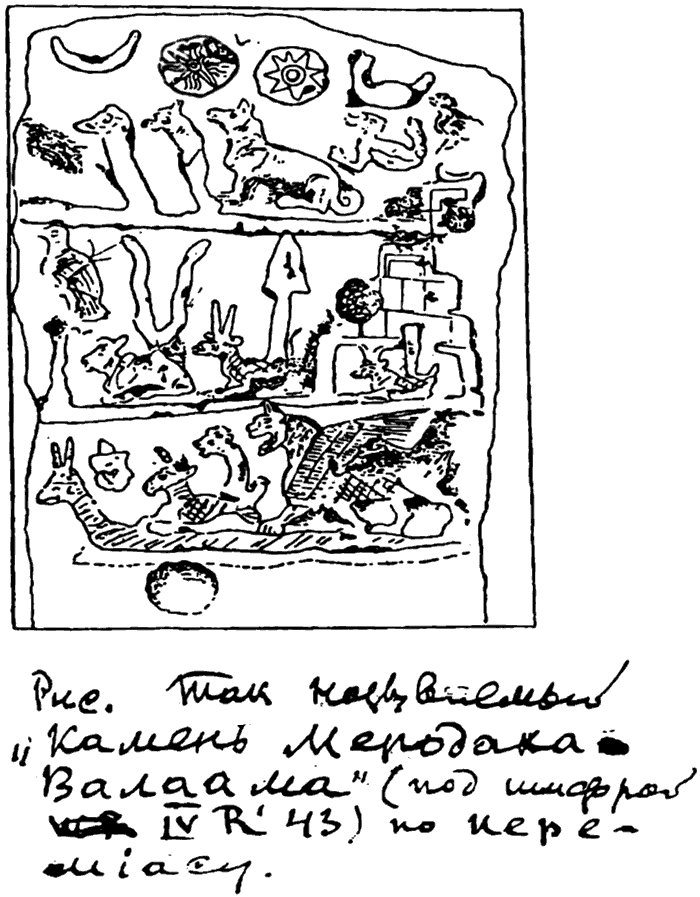 Рис. Так называемый
„Камень Меродака-
Валаама" (под шифрой
IV R 43) по Иере-
міасу.